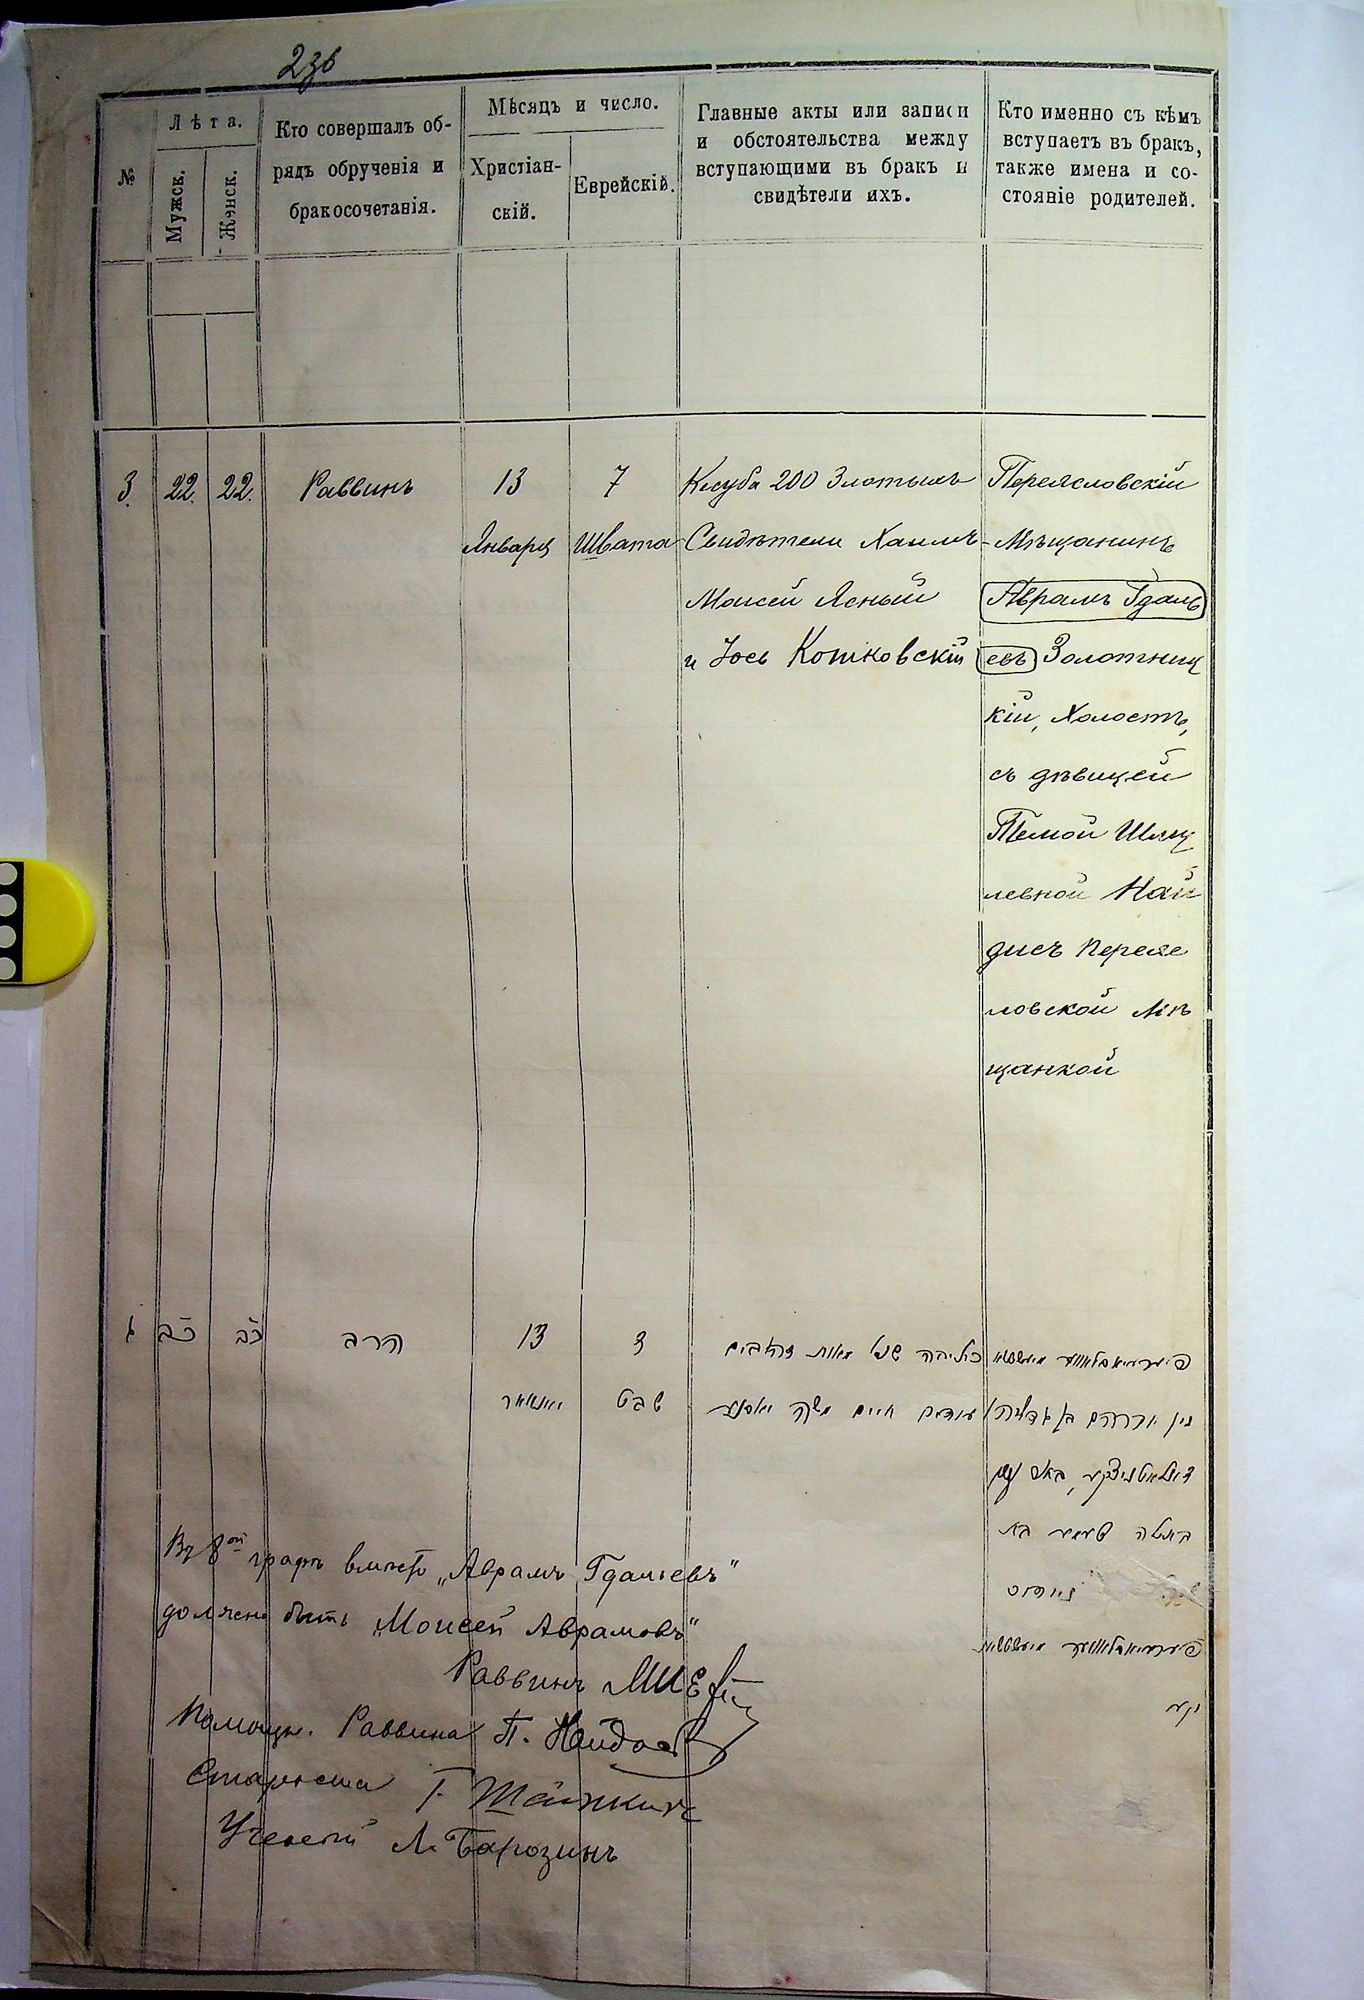 236
№
Лѣта.
Мужск.
Женск.
Кто совершалъ об-
рядъ обрученія и
бракосочетанія.
Мѣсяцъ и число.
Христіан-
скій.
Еврейскій.
Главные акты или записи
и обстоятельства между
вступающими въ бракъ и
свидѣтели ихъ.
Кто именно съ кѣмъ
вступаетъ въ бракъ,
также имена и со-
стояніе родителей.
3. 22. 22. Раввинъ
13
Января
7
Швата
Ксуба 200 Злотыхъ
Свидѣтели Хаимъ-
Моисей Ясный
и Іось Котковскій
Переясловскій
Мѣщанинъ
Аврамъ Гдаль
евъ Золотниц
кій, Холостъ,
съ дѣвицей
Темой Шму
левной Най
дисъ Переяс
ловской Мѣ
щанкой
ג כב כב הרב
13
יאנואר
ז
שבט
מאות זהובים
עודים חיים משה יאסנע
אברהם בן גדליה
נײדוס
Въ 8ой графѣ вмѣсто „Аврамъ Гдальевъ"
должно быть „Моисей Аврамовъ"
Раввинъ
Помощн. Раввина П.
Староста Г.
Ученый Л.